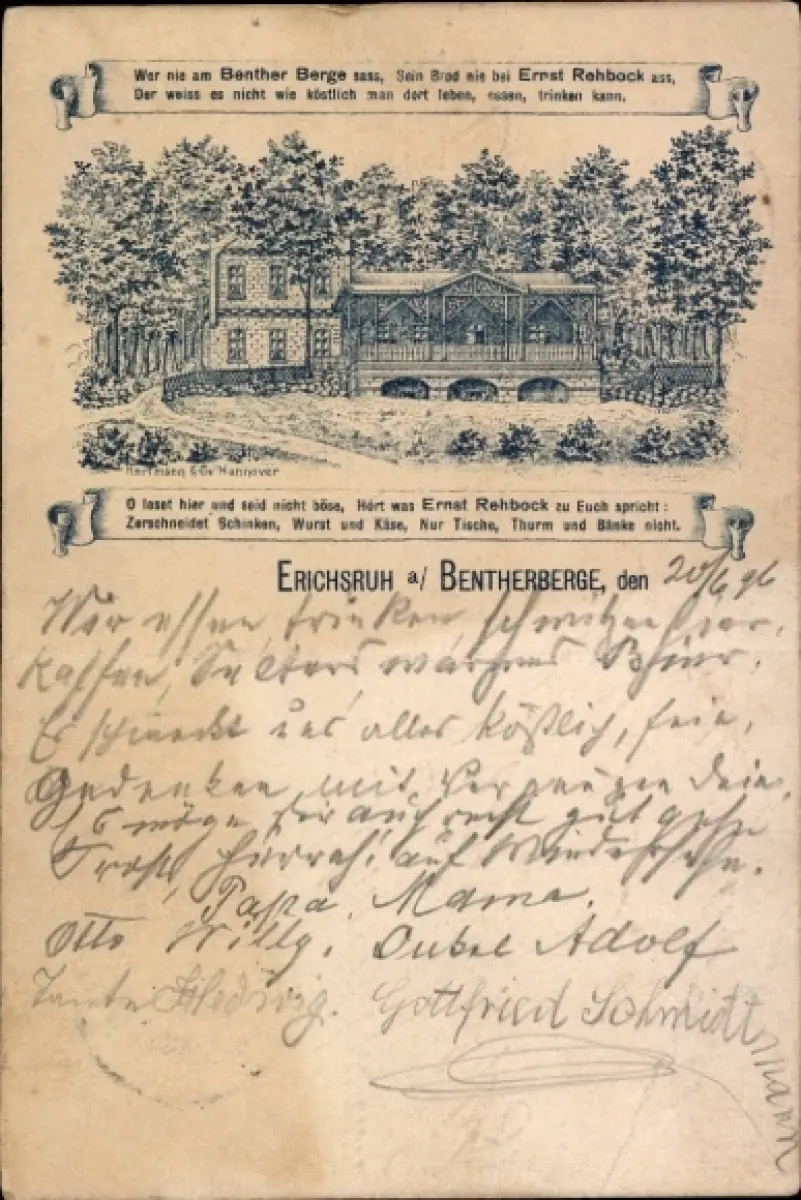 Wer nie am Benther Berge sass, Sein Brod nie bei Ernst Rehbock ass,
Der weiss es nicht wie köstlich man dort leben, essen, trinken kann.
Hartmann & Co Hannover
O leset hier und seid nicht böse, Hört was Ernst Rehbock zu Euch spricht:
Zerschneidet Schinken, Wurst und Käse, Nur Tische, Thurm und Bänke nicht.
ERICHSRUH a/ BENTHERBERGE, den 20/6 96
Wir essen, trinken, schwitzen hier,
Kaffee, Selters warmes Bier.
Es schmeckt uns alles köstlich, fein,
Gedenken mit Vergnügen Dein.
Es möge Dir auch recht gut gehn
Prost, Hurrah! auf Wiedersehn.
Papa, Mama.
Otto Willy. Onkel Adolf
Tante Hedwig. Gottfried Schmidtmann